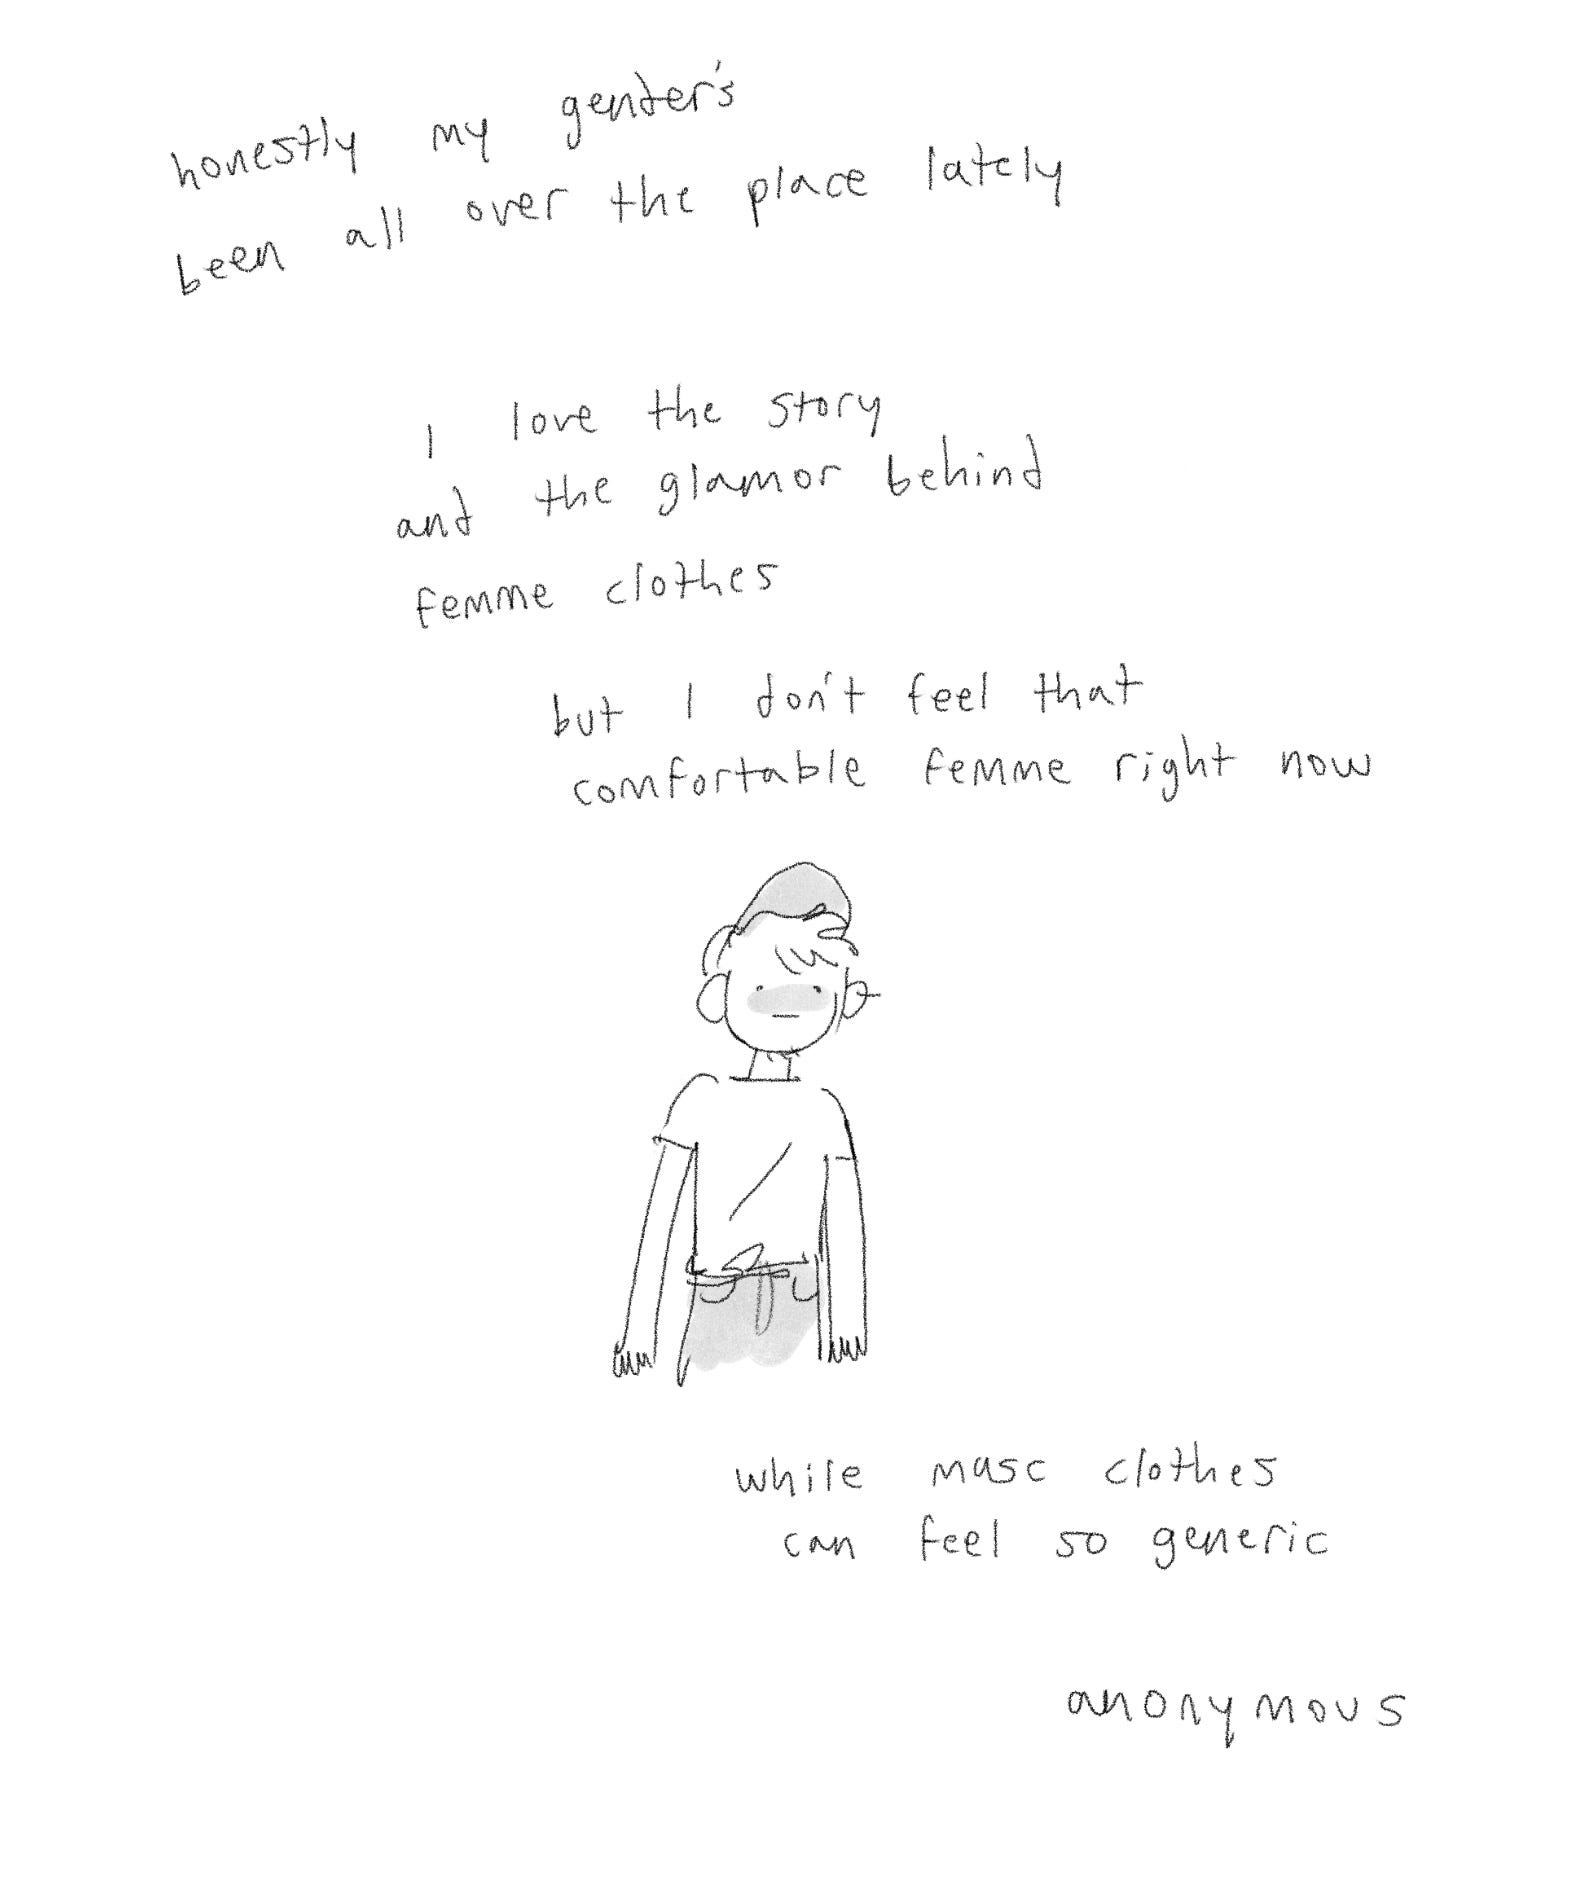 honestly my gender's
been all over the place lately
I love the story
and the glamor behind
femme clothes
but I don't feel that
comfortable femme right now
while masc clothes
can feel so generic
anonymous